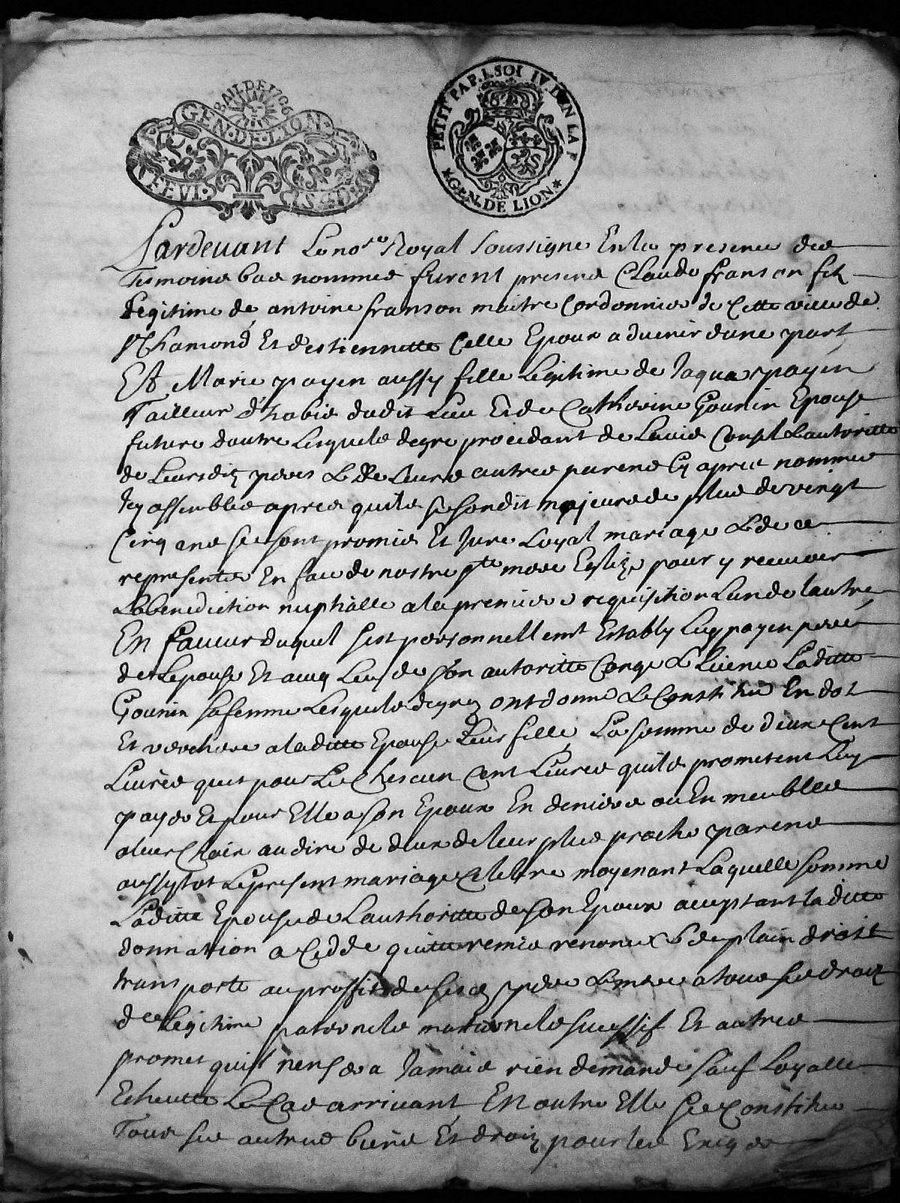 BAIL DE 1766
GEN. DE LION
PETIT PAP. 1. SOL IV. DEN LA F
GEN. DE LION
Pardevant Le no.re Royal Soussigne En la presence des
Tesmoins bas nommes furent presens Claude franson filz
Legitime de antoine franson maitre Cordonnier de Cette ville de
St Chamond Et destiennette Celle Epoux aduenir dune part
Et Marie payen aussy fille Legitime de Jaques payen
Tailleur d'habis dudit Lieu Et de Catherine Gounin Epouse
future dautre Lesquels degre procedant de Lauis Conseil Lautoritte
de Leursdis peres & de Leurs autres parens Cy apres nommes
Icy assembles apres quils se sondit majeurs de plus de vingt
Cinq ans se sont promis Et Jure Loyal mariage & de ce
represente En face de nostre ste mere Eglize pour y receuoir
La benediction nuptialle a la premiere requisition Lun de lautre
En faueur duquel sest personnellemt Estably Led payen pere
de Lepouse Et aueq Luy de son autoritte Conge & Licence Laditte
Gounin sa femme Lesquels degrez ont donne & Constitue En dot
Et verchere a laditte Epouse Leur fille La somme de deux Cent
Liures quest pour Le Chescun Cent Liures quils prometent Luy
payer Et pour Elle a son Epoux En deniers ou En meubles
a leur Choix au dire de deux de leur plus proche parens
aussytot Le present mariage Celebre moyenant Laquelle somme
Laditte Epouse de Lauthoritte de son Epoux aceptant laditte
donnation a Cedde quitte remis renonce & de plain droit
transporte au proffit de sesd pere & mere a tous ses droiz
de Legitime paternels maternels sucessif Et autres
promet quil nensera Jamais rien demande sauf Loyalle
Echeutte Le Cas arriuant En outre Elle se Constitue
Tous ses autres biens Et droiz pour les Exiger